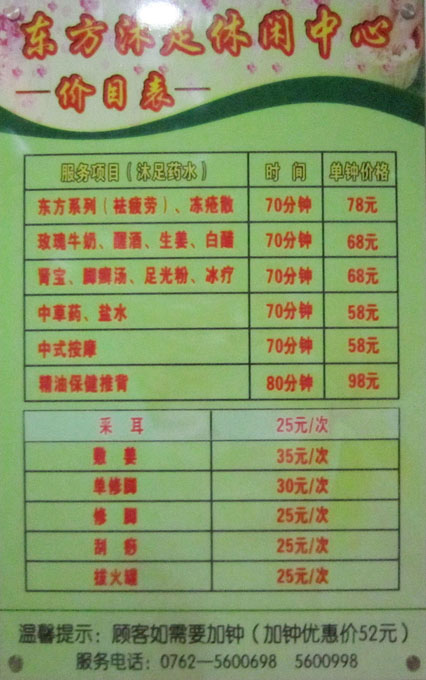 东方沐足休闲中心
价目表
服务项目（沐足药水） 时 间 单钟价格
东方系列（祛疲劳）、冻疮散 70分钟 78元
玫瑰牛奶、醋酒、生姜、白醋 70分钟 68元
肾宝、脚癣汤、足光粉、冰疗 70分钟 68元
中草药、盐水 70分钟 58元
中式按摩 70分钟 58元
精油保健推背 80分钟 98元
采 耳 25元/次
敷 姜 35元/次
单修脚 30元/次
修 脚 25元/次
刮 痧 25元/次
拔火罐 25元/次
温馨提示：顾客如需要加钟（加钟优惠价52元）
服务电话：0762—5600698 5600998